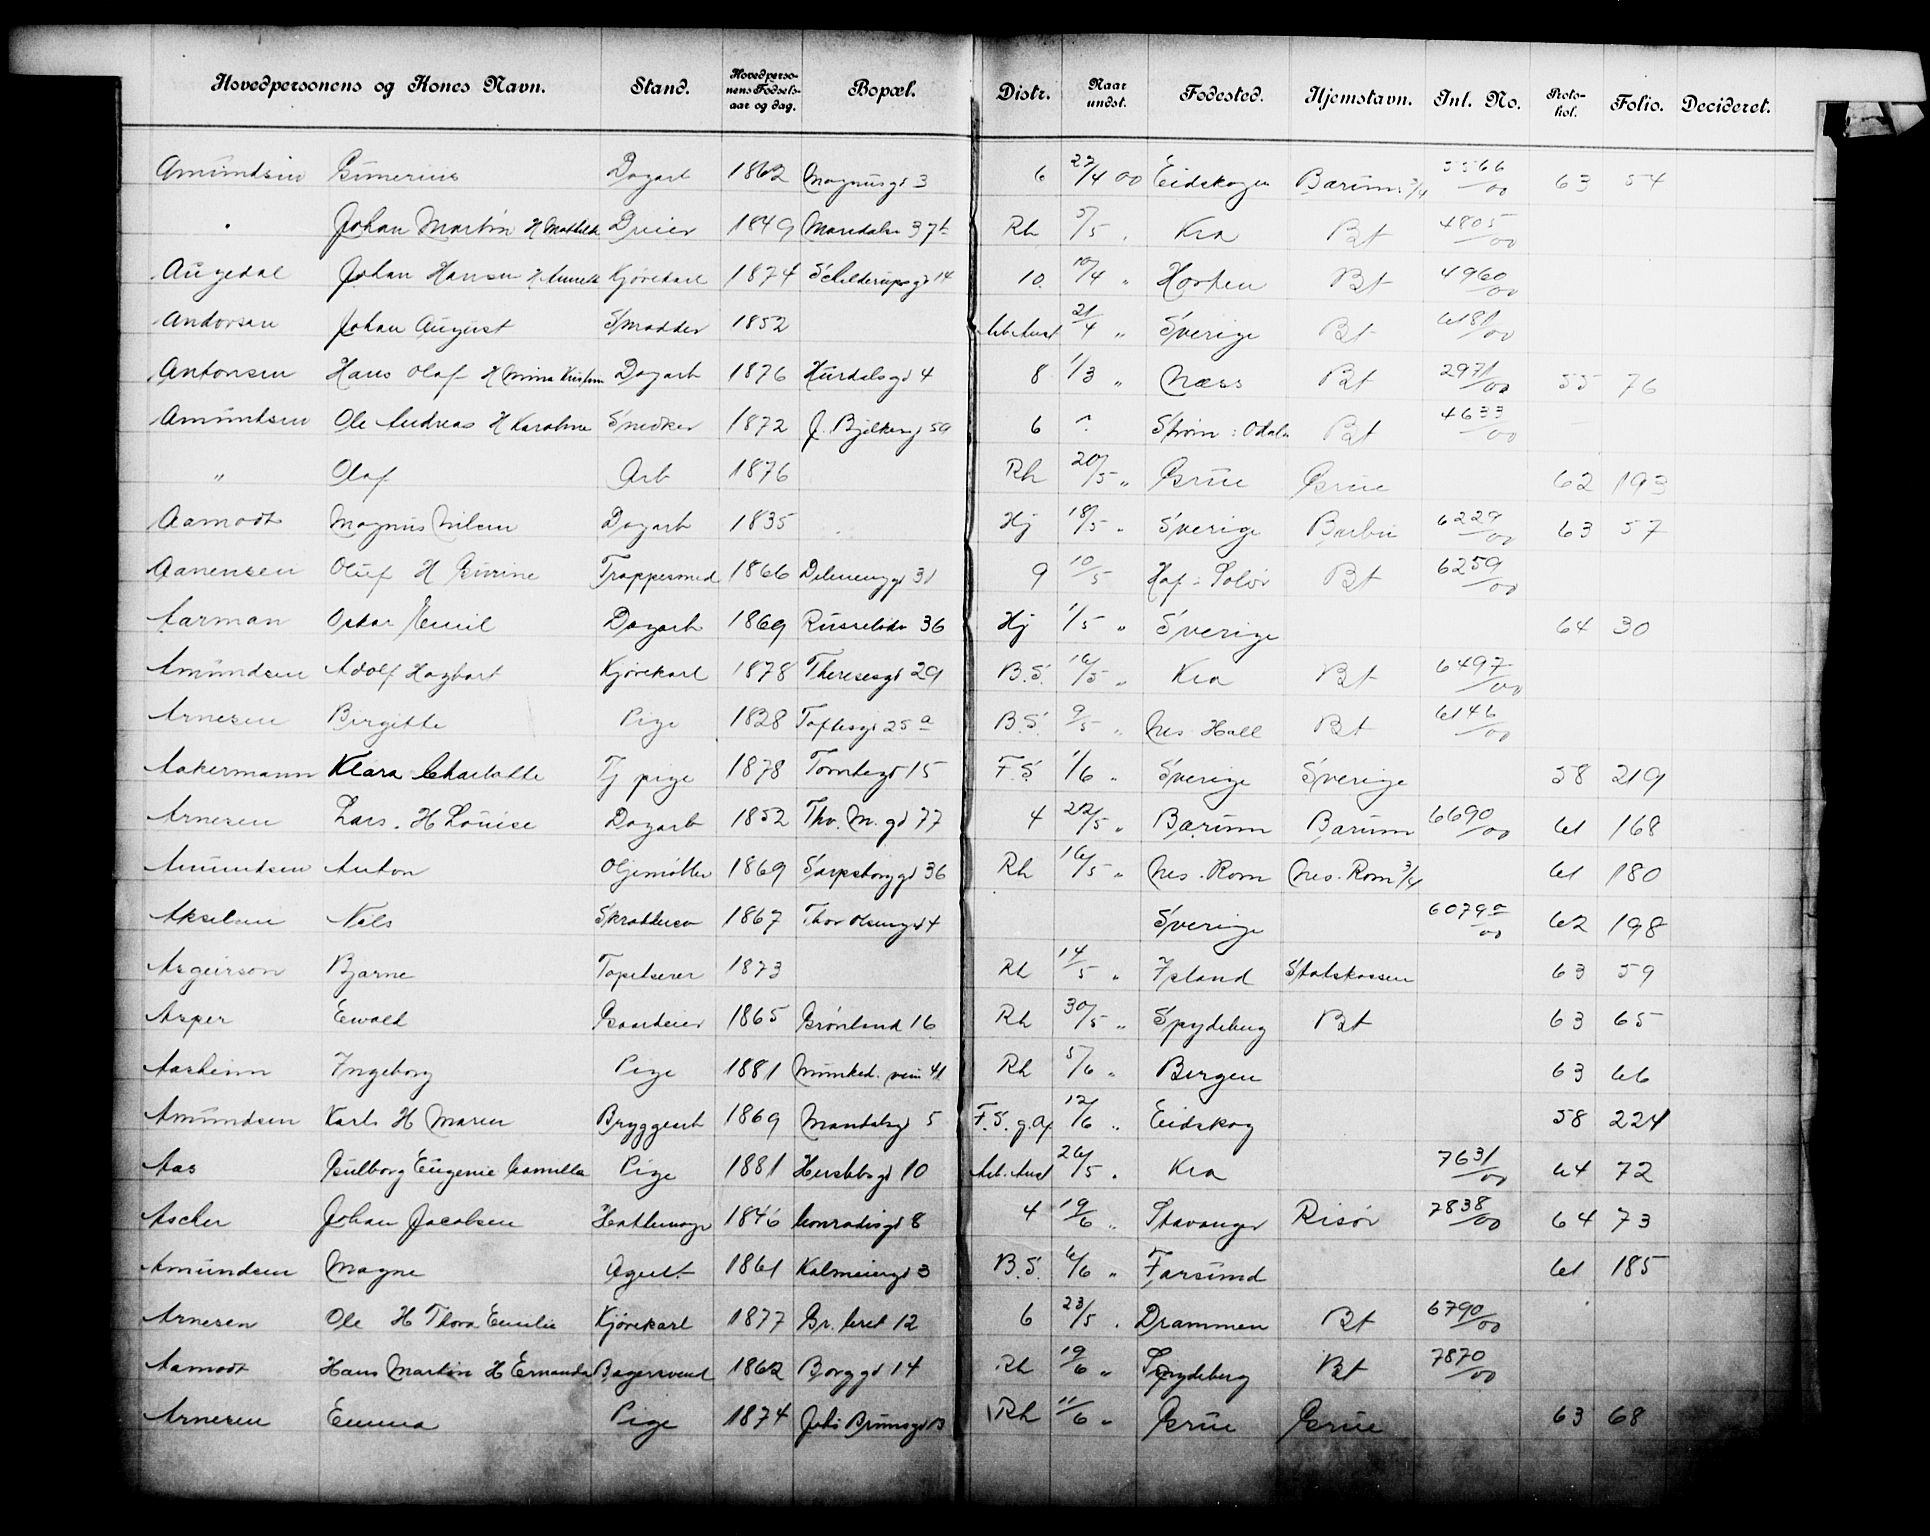 Hovedpersonens og Kones Navn. Stand. Hovedpersonens Fødselsaar og dag. Bopæl. Distr. Naar undst. Fødested. Hjemstavn. Inl. No. Protokol. Folio. Decideret.
Amundsen Gunerius Dagarb 1862 Magnusgd 3 6 27/4 00 Eidskogen Bærum 3/4 5566/00 63 54
" Johan Martin H Mathilde Dreier 1849 Maridalsv 37b Rh 5/5 " Kra Bt 4805/00
Augedal Johan Hansen H Annette Kjørekarl 1874 Schilderupsgd 14 10 10/4 " Horten Bt 4960/00
Andorsen Johan August Smedder 1852 Arb. Anst 21/4 " Sverige Bt 6181/00
Antonsen Hans Olaf H Mina Kristine Dagarb 1876 Hurdalsgd 4 8 1/3 " Næss Bt 2971/00 55 76
Amundsen Ole Andreas H Karoline Snedker 1872 J. Bjelkesgd 59 6 " Strøm : Odalen Bt 4633/00
" Olaf Arb 1876 Rh 20/5 " Grue Grue 62 193
Aamodt Magnus Nilsen Dagarb 1835 Hj 18/5 " Sverige Barbu 6229/00 63 57
Aanensen Oluf H Gurine Trappesmed 1866 Delenenggd 31 9 10/5 Hof : Solør Bt 6259/00
Aarman Oskar Emil Dagarb 1869 Russeløkv 36 Hj 1/5 " Sverige 64 30
Amundsen Adolf Hagbart Kjørekarl 1878 Theresesgd 29 B.S. 16/5 " Kra Bt 6497/00
Arnesen Birgitte Pige 1828 Toftesgd 25 a B.S. 9/5 " Nes Hall Bt 6146/00
Aakermann Klara Charlotte Tj pige 1878 Tomtegd 15 F.S. 1/6 " Sverige Sverige 58 219
Arnesen Lars. H Louise Dagarb 1852 Thv. M. gd 77 4 22/5 " Bærum Bærum 6690/00 61 168
Amundsen Anton Oljemøller 1869 Sarpsborggd 36 Rh 16/5 " Nes. Rom Nes. Rom 3/4 61 180
Akselsen Nils Skrædder 1867 Thor Olsensgd 4 Sverige 6079a/00 62 198
Asgeirson Bjarne Tapetserer 1873 Rh 14/5 " Island Statskassen 63 59
Asper Ewald Gaardeier 1865 Grønland 16 Rh 30/5 " Spydeberg Bt 63 65
Aasheim Ingeborg Pige 1881 Munked. veien 41 Rh 5/6 " Bergen 63 66
Amundsen Karls H Maren Bryggearb 1869 Mandalsgd 5 F.S. g. Af 12/6 " Eidskog 58 224
Aas Gulborg Eugenie Camilla Pige 1881 Herslebsgd 10 Arb. Anst 26/5 " Kra 7631/00 64 72
Ascher Johan Jacobsen Hattemager 1846 Conradisgd 8 4 19/6 " Stavanger Risør 7838/00 64 73
Amundsen Magne Agent 1861 Kalmeiergd 3 B.S. 6/6 " Farsund 61 185
Arnesen Ole H Thora Emilie Kjørekarl 1877 Gr. leret 12 6 23/5 " Drammen Bt 6790/00
Aamodt Hans Martin H Ernanda Bagersvend 1862 Borggd 14 Rh 19/6 " Spydeberg Bt 7870/00
Arnesen Emma Pige 1874 Johs Brunsgd 13 Rh 11/6 " Grue Grue 63 68